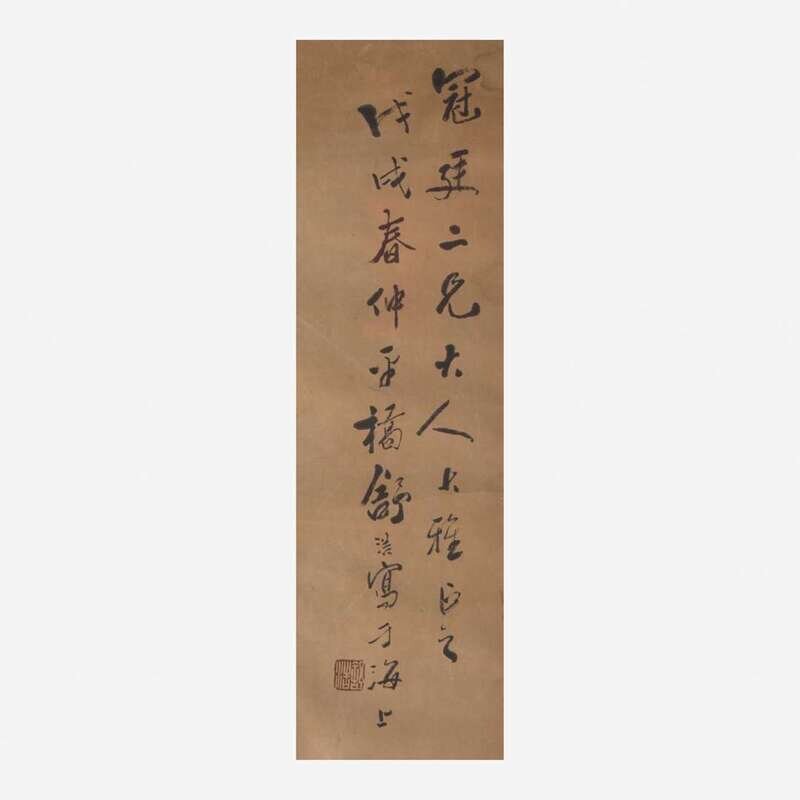 冠廷二兄大人大雅正之
戊戌春仲平橋舒浩寫于海上